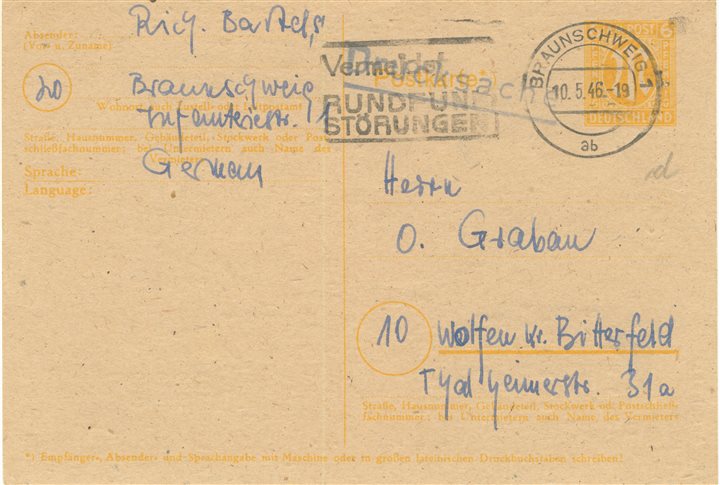 Absender:
(Vor- u. Zuname)
Rich. Bartels
20
Braunschweig
Wohnort, auch Zustell- oder Leitpostamt
Infanteriestr. 11
Straße, Hausnummer, Gebäudeteil, Stockwerk oder Post-
schließfachnummer; bei Untermietern auch Name des
Vermieters
Sprache:
German
Language:
Vermeidet
RUNDFUNK
STÖRUNGEN
Drucksache
Postkarte*)
BRAUNSCHWEIG 1
10.5.46.-19
ab
POST
6
DEUTSCHLAND
d
Herrn
O. Grabau
10 Wolfen Kr. Bitterfeld
31a
Straße, Hausnummer, Gebäudeteil, Stockwerk od. Postschließ-
fachnummer; bei Untermietern auch Name des Vermieters
*) Empfänger-, Absender- und Sprachangabe mit Maschine oder in großen lateinischen Druckbuchstaben schreiben!